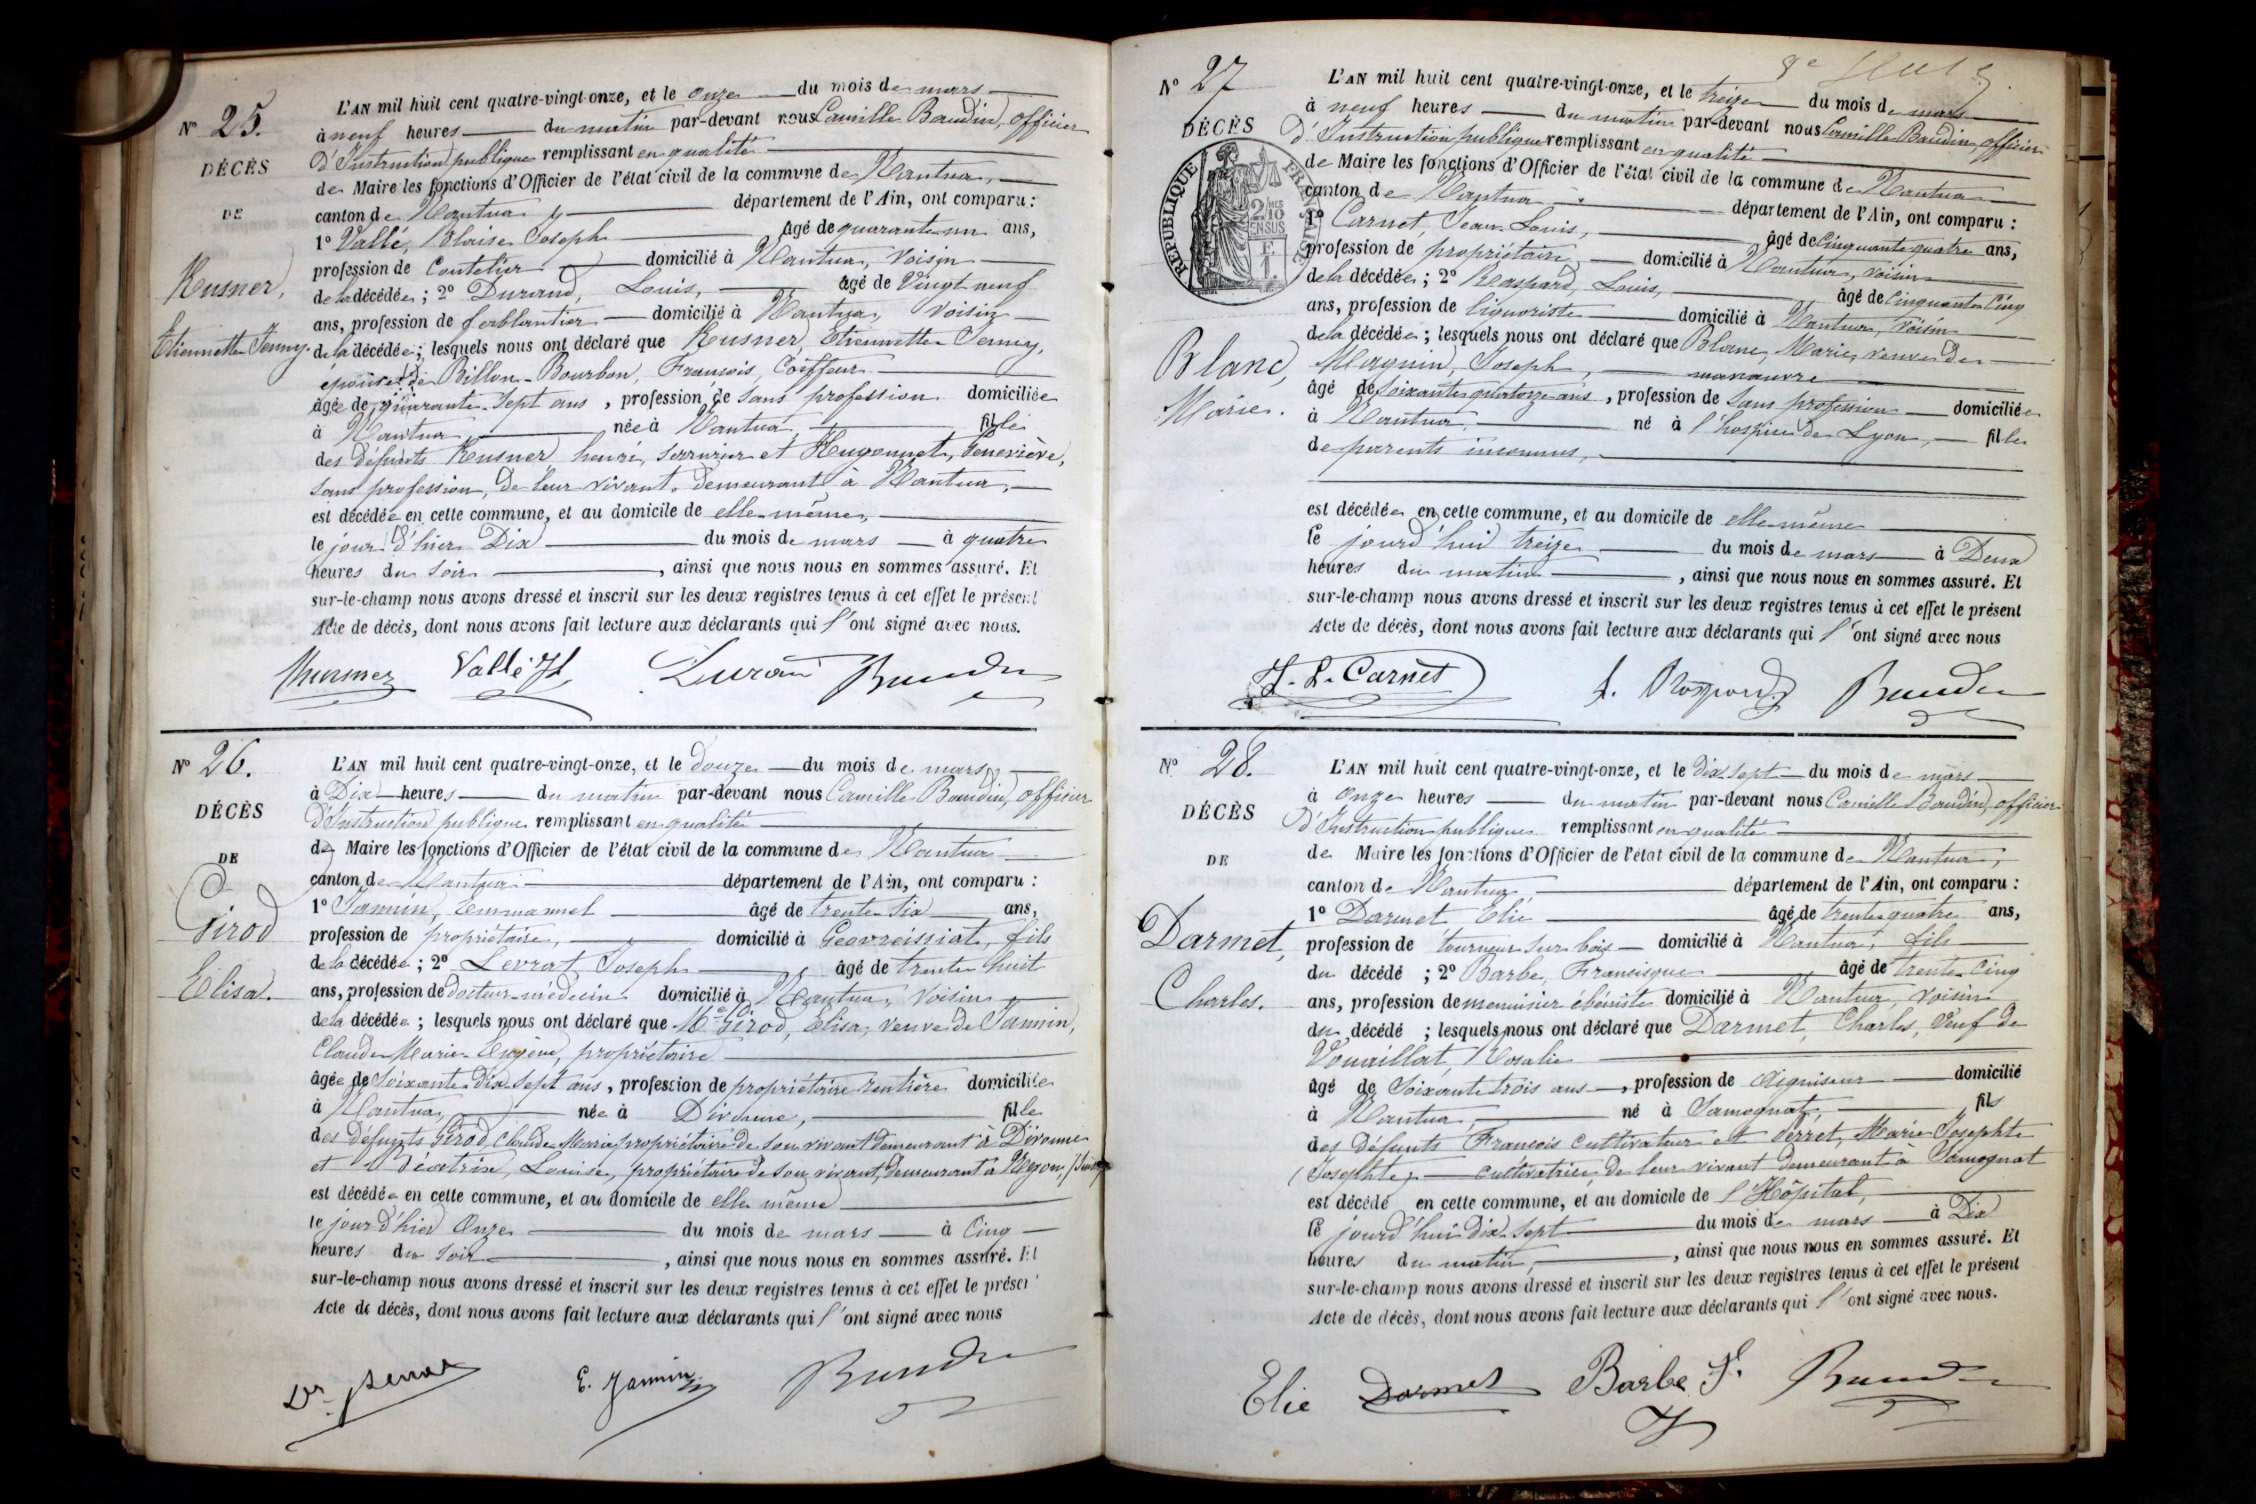 Nº 25.
DÉCÈS
DE
Kusner,
Etiennette Jenny.
L'AN mil huit cent quatre-vingt-onze, et le onze du mois de mars
à neuf heures du matin par-devant nous Camille Baudin, officier
d'Instruction publique remplissant en qualité
de Maire les fonctions d'Officier de l'état civil de la commune de Nantua,
canton de Nantua département de l'Ain, ont comparu :
1º Vallé, Blaise Joseph âgé de quarante un ans,
profession de Coutelier domicilié à Nantua, voisin
de la décédée ; 2º Durand, Louis, âgé de Vingt neuf
ans, profession de ferblantier domicilié à Nantua, voisin
de la décédée ; lesquels nous ont déclaré que Kusner, Etiennette Jenny,
épouse de Billon-Bourbon, François, Coiffeur
âgée de quarante-sept ans, profession de sans profession domiciliée
à Nantua née à Nantua, fille
des défunts Kusner henri, serrurier et Hugonnet, Geneviève,
sans profession, de leur vivant demeurant à Nantua,
est décédée en cette commune, et au domicile de elle-même,
le jour d'hier Dix du mois de mars à quatre
heures du soir, ainsi que nous nous en sommes assuré. Et
sur-le-champ nous avons dressé et inscrit sur les deux registres tenus à cet effet le présent
Acte de décès, dont nous avons fait lecture aux déclarants qui l'ont signé avec nous.
Vallé Durand Baudin
Nº 26.
DÉCÈS
DE
Girod
Elisa.
L'AN mil huit cent quatre-vingt-onze, et le douze du mois de mars
à Dix heures du matin par-devant nous Camille Baudin, officier
d'Instruction publique remplissant en qualité
de Maire les fonctions d'Officier de l'état civil de la commune de Nantua
canton de Nantua département de l'Ain, ont comparu :
1º Jannin, Emmanuel âgé de trente six ans,
profession de propriétaire, domicilié à Geovreissiat, fils
de la décédée ; 2º Levrat Joseph âgé de trente huit
ans, profession de docteur-médecin domicilié à Nantua, voisin
de la décédée ; lesquels nous ont déclaré que Mme Girod, Elisa, veuve de Jannin,
Claude Marie Eugène, propriétaire
âgée de soixante-dix-sept ans, profession de propriétaire rentière domiciliée
à Nantua, née à Divonne, fille
des défunts Girod, Claude Marie propriétaire de son vivant demeurant à Divonne
et Béatrix, Louise, propriétaire de son vivant, demeurant à Nyon, (Suisse)
est décédée en cette commune, et au domicile de elle même
le jour d'hier Onze du mois de mars à Cinq
heures du soir, ainsi que nous nous en sommes assuré. Et
sur-le-champ nous avons dressé et inscrit sur les deux registres tenus à cet effet le présent
Acte de décès, dont nous avons fait lecture aux déclarants qui l'ont signé avec nous
Dr Levrat E. Jannin Baudin
Nº 27
DÉCÈS
RÉPUBLIQUE FRANÇAISE
2/10 EN SUS
Blanc,
Marie.
L'AN mil huit cent quatre-vingt-onze, et le treize du mois de mars
à neuf heures du matin par-devant nous Camille Baudin, officier
d'Instruction publique remplissant en qualité
de Maire les fonctions d'Officier de l'état civil de la commune de Nantua
canton de Nantua département de l'Ain, ont comparu :
1º Carnet, Jean-Louis, âgé de Cinquante quatre ans,
profession de propriétaire, domicilié à Nantua, voisin
de la décédée ; 2º Raspard, Louis, âgé de Cinquante Cinq
ans, profession de liquoriste domicilié à Nantua, voisin
de la décédée ; lesquels nous ont déclaré que Blanc, Marie, veuve de
Magnin, Joseph, manœuvre
âgé de soixante quatorze ans, profession de sans profession domiciliée
à Nantua, né à l'hospice de Lyon, fille
de parents inconnus,
est décédée en cette commune, et au domicile de elle-même
le jourd'hui treize du mois de mars à Deux
heures du matin, ainsi que nous nous en sommes assuré. Et
sur-le-champ nous avons dressé et inscrit sur les deux registres tenus à cet effet le présent
Acte de décès, dont nous avons fait lecture aux déclarants qui l'ont signé avec nous
J. L. Carnet L. Raspard Baudin
Nº 28.
DÉCÈS
DE
Darmet,
Charles.
L'AN mil huit cent quatre-vingt-onze, et le dix-sept du mois de mars
à onze heures du matin par-devant nous Camille Baudin, officier
d'Instruction publique remplissant en qualité
de Maire les fonctions d'Officier de l'état civil de la commune de Nantua,
canton de Nantua département de l'Ain, ont comparu :
1º Darmet Elie âgé de trente quatre ans,
profession de tourneur sur bois domicilié à Nantua, fils
du décédé ; 2º Barbe, Francisque âgé de trente-Cinq
ans, profession de menuisier ébéniste domicilié à Nantua, voisin
du décédé ; lesquels nous ont déclaré que Darmet, Charles, veuf de
Vouaillat, Rosalie
âgé de soixante trois ans, profession de aiguiseur domicilié
à Nantua, né à Samognat, fils
des défunts François cultivateur et Perret, Marie Josephte
(Josephte) cultivatrice, de leur vivant demeurant à Samognat
est décédé en cette commune, et au domicile de l'Hôpital,
le jourd'hui dix-sept du mois de mars à Dix
heures du matin, ainsi que nous nous en sommes assuré. Et
sur-le-champ nous avons dressé et inscrit sur les deux registres tenus à cet effet le présent
Acte de décès, dont nous avons fait lecture aux déclarants qui l'ont signé avec nous.
Elie Darmet Barbe F. Baudin